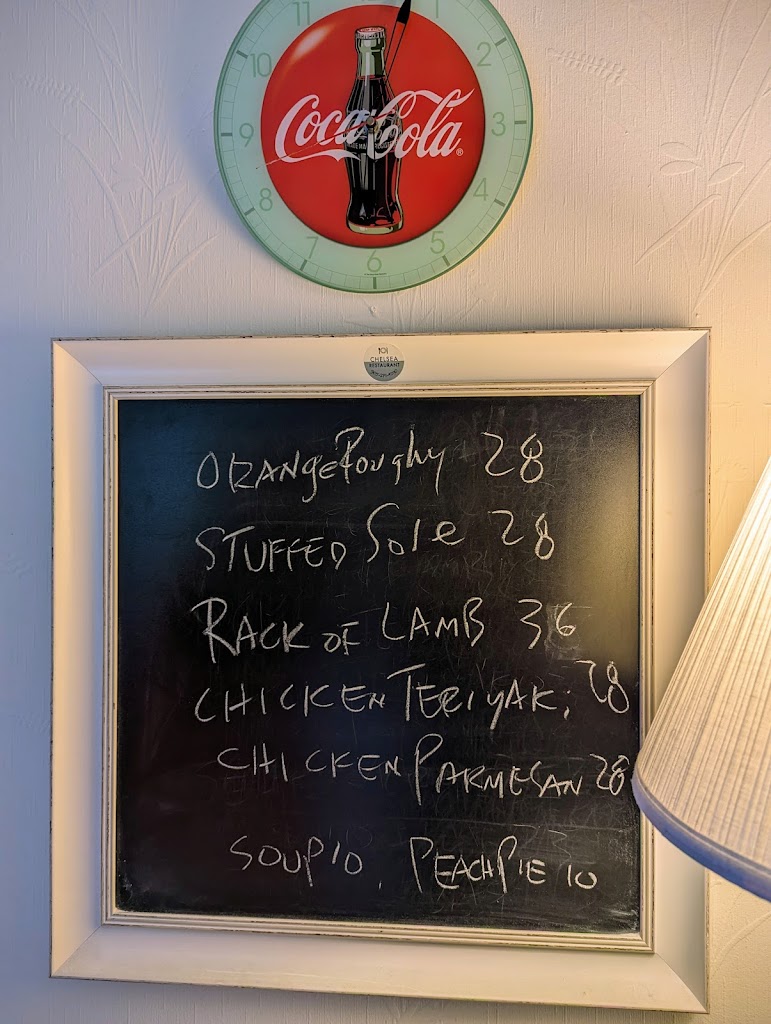 11 1
10 2
Coca-Cola®
9 3
8 4
7 5
6
101
CHELSEA
RESTAURANT
ORANGE Roughy 28
STUFFED Sole 28
RACK OF LAMB 36
CHICKEN TERIYAKi 28
CHICKEN PARMESAN 28
SOUP 10. PEACH PIE 10